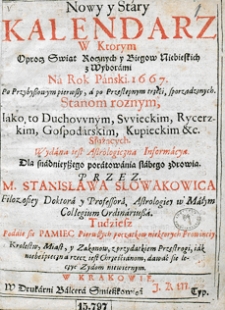 Nowy y Stáry
KALENDARZ
W Ktorym
Oprocz Swiąt Rocznych y Biegow Niebieskich
z Wyborámi
Ná Rok Páński 1667.
Po Przybyszowym pierwszy, á po Przestępnym trzeći, sporządzonych.
Stanom roznym,
Iáko, to Duchovvnym, Svvieckim, Rycerz-
kim, Gospodárskim, Kupieckim &c.
Służących.
Wydána iest Astrologiczna Informácya
Dla snádnieyszego porátowánia słábego zdrowia.
PRZEZ
M. STANISŁAWA SŁOWAKOWICA
Filozofiey Doktorá y Professorá, Astrologiey w Máłym
Collegium Ordináriuszá.
Tudziesz
Podáie się PAMIEC Pierwszych początkow niektorych Prowinciy,
Krolestw, Miast, y Zakonow, z przydátkiem Przestrogi, iák
niebespieczna rzecz iest Chrześćiánom, dáwáć się le-
czyć Zydom niewiernym.
W KRAKOWIE,
W Drukárni Bálcerá Smieszkowicá Typ.
15.797